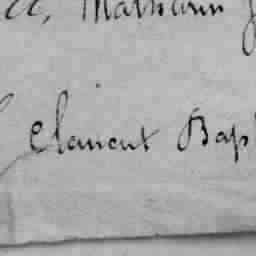 Mathurin
Clément Bap